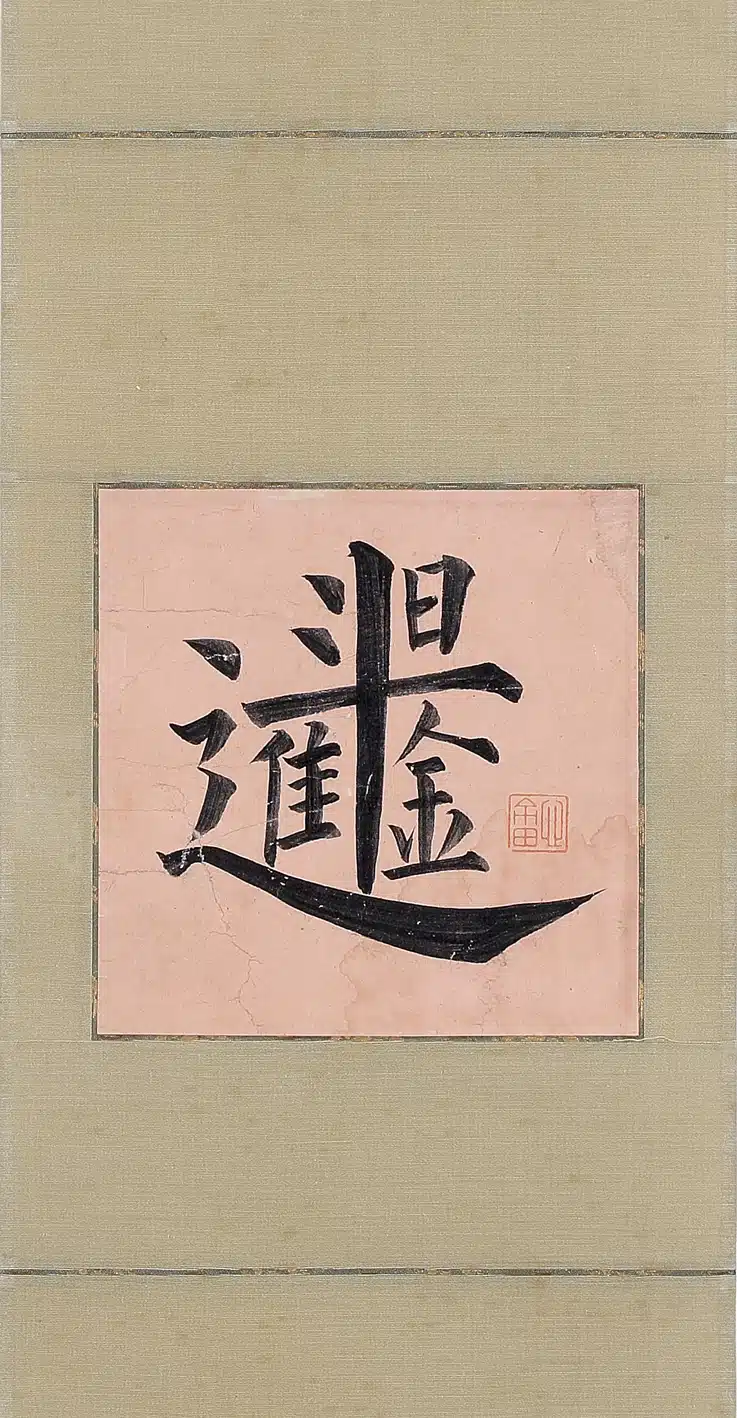 日進斗金